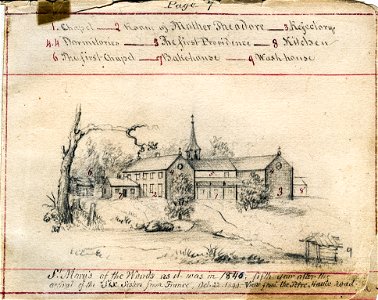 Page 7
1. Chapel — 2 Room of Mother Theodore — 3 Refectory
4.4 Dormitories — 5 The first Providence — 8 Kitchen
6 The first Chapel — 7 Bakehouse — 9 Wash house
St Mary's of the Woods as it was in 1846, fifth year after the
arrival of the Six Sisters from France, Oct. 22. View from the Terre Haute Road.